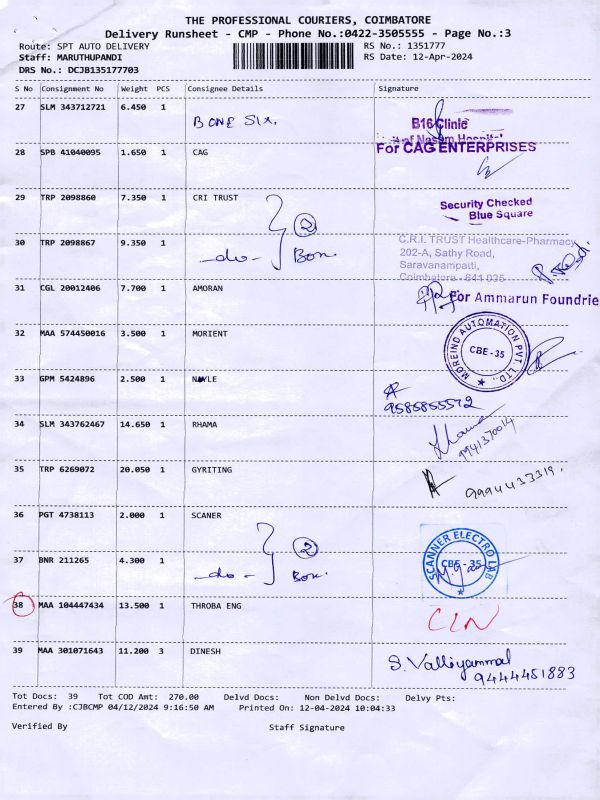 THE PROFESSIONAL COURIERS, COIMBATORE
Delivery Runsheet - CMP - Phone No.:0422-3505555 - Page No.:3
Route: SPT AUTO DELIVERY RS No.: 1351777
Staff: MARUTHUPANDI RS Date: 12-Apr-2024
DRS No.: DCJB135177703
S No Consignment No Weight PCS Consignee Details Signature
27 SLM 343712721 6.450 1 BONE SIX. B16 Clinic
of Hospital
28 SPB 41040095 1.650 1 CAG For CAG ENTERPRISES
29 TRP 2098860 7.350 1 CRI TRUST Security Checked
2 Blue Square
30 TRP 2098867 9.350 1 -do- Box. C.R.I. TRUST Healthcare-Pharmacy
202-A, Sathy Road,
Saravanampatti,
Coimbatore - 641 035
31 CGL 20012406 7.700 1 AMORAN For Ammarun Foundrie
32 MAA 574450016 3.500 1 MORIENT MOREIND AUTOMATION PVT. LTD.,
CBE - 35
33 GPM 5424896 2.500 1 NAYLE
9585855572
34 SLM 343762467 14.650 1 RHAMA
9941370014
35 TRP 6269072 20.050 1 GYRITING 9994433319.
36 PGT 4738113 2.000 1 SCANER
2 SCANNER ELECTRO LAB
37 BNR 211265 4.300 1 -do- Box. CBE - 35
38 MAA 104447434 13.500 1 THROBA ENG CLN
39 MAA 301071643 11.200 3 DINESH S. Valliyammal
9444451883
Tot Docs: 39 Tot COD Amt: 270.00 Delvd Docs: Non Delvd Docs: Delvy Pts:
Entered By :CJBCMP 04/12/2024 9:16:50 AM Printed On: 12-04-2024 10:04:33
Verified By Staff Signature